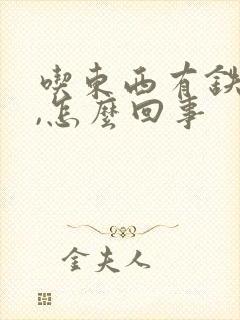 喫東西有鉄
,怎麼回事
金夫人